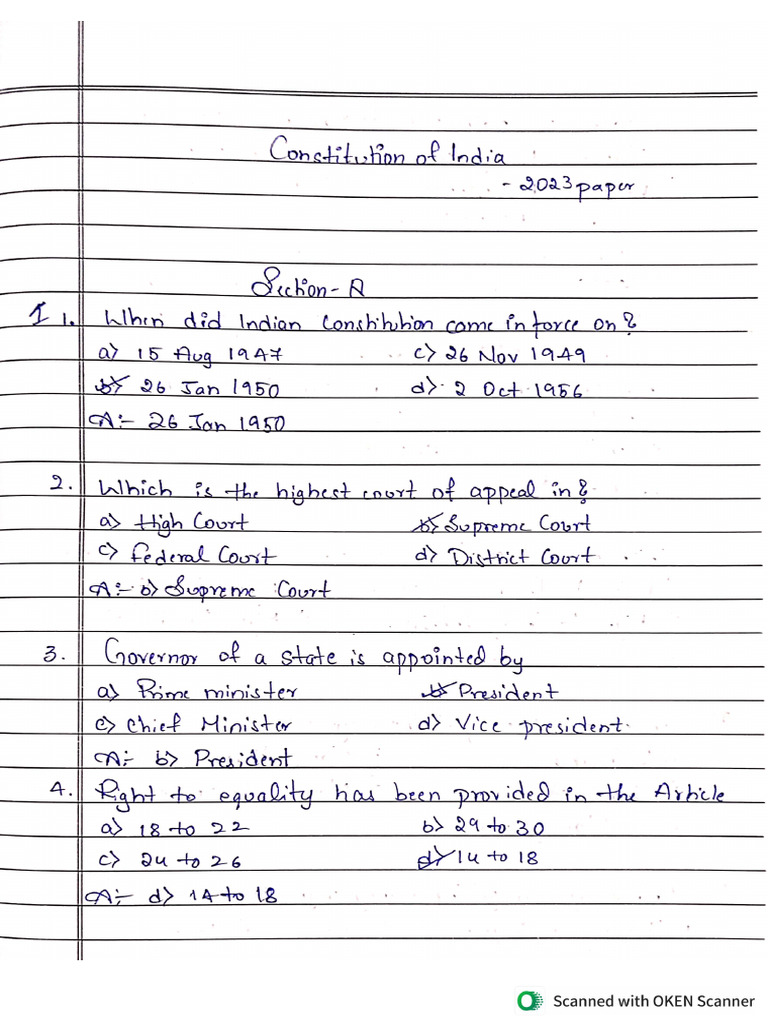 Constitution of India
- 2023 paper
Section - A
I 1. When did Indian Constitution come in force on?
a) 15 Aug 1947 c) 26 Nov 1949
b) 26 Jan 1950 d) 2 Oct 1956
A:- 26 Jan 1950
2. Which is the highest court of appeal in?
a) High Court b) Supreme Court
c) Federal Court d) District Court
A:- b) Supreme Court
3. Governor of a state is appointed by
a) Prime minister b) President
c) Chief Minister d) Vice president
A:- b) President
4. Right to equality has been provided in the Article
a) 18 to 22 b) 29 to 30
c) 24 to 26 d) 14 to 18
A:- d) 14 to 18
Scanned with OKEN Scanner